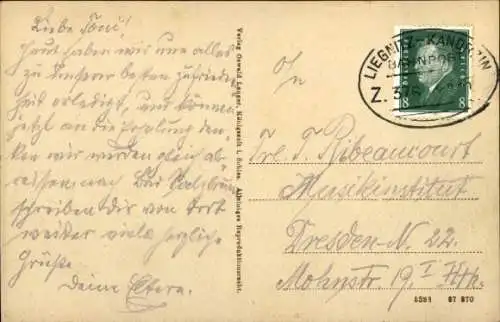 Liebe Toni!
Heut haben wir nun alles
zu unserer besten Zufrieden
heit erledigt, und können
jetzt an die Erholung den-
ken wir werden gleich ab-
reisen nach Bad
schreiben Dir von dort
weiter viele herzliche
Grüße
Deine Eltern.
Verlag Oswald Langer, Königszelt i. Schles. Alleiniges Reproduktionsrecht.
LIEGNITZ-KANDRZIN
BAHNPOST
Z. 376
8 8
An
Frl. T. Ribeaucourt
Musikinstitut
Dresden-N. 22.
Mohnstr. 19. I
67 870